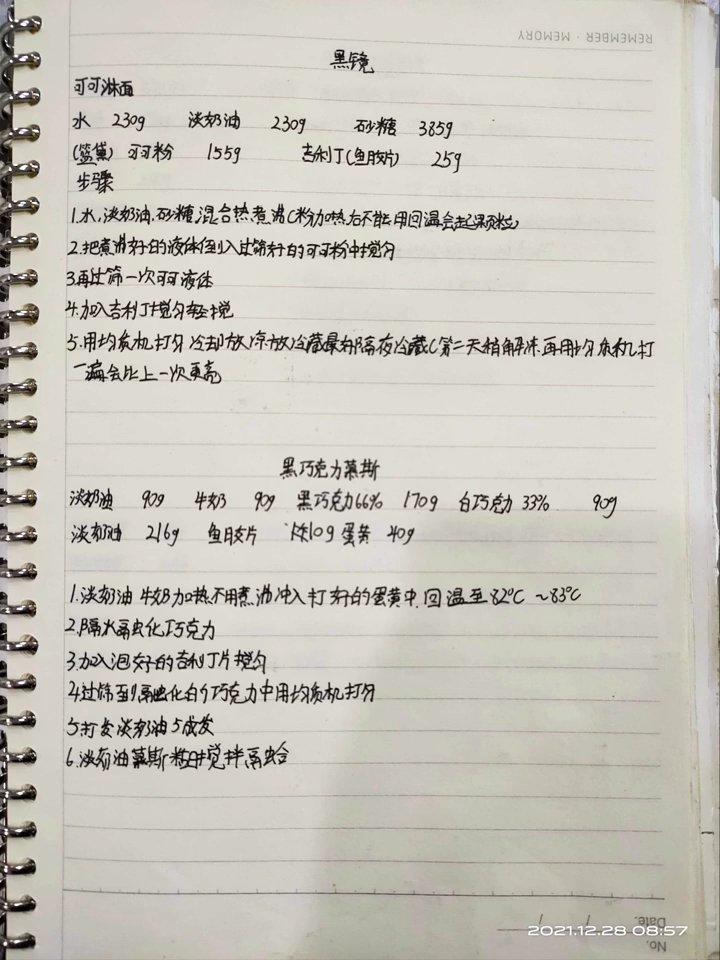 REMEMBER · MEMORY
黑镜
可可淋面
水 230g 淡奶油 230g 砂糖 385g
(篮黛) 可可粉 155g 吉利丁(鱼胶片) 25g
步骤
1.水,淡奶油,砂糖混合热煮沸(粉加热后不能用回温会起颗粒)
2.把煮沸好的液体倒入过筛好的可可粉中搅匀
3.再过筛一次可可液体
4.加入吉利丁搅匀轻搅
5.用均质机打匀 冷却放凉放冷藏最好隔夜冷藏(第二天稍解冻再用均质机打
一遍会比上一次更亮
黑巧克力慕斯
淡奶油 90g 牛奶 90g 黑巧克力66% 170g 白巧克力33% 90g
淡奶油 216g 鱼胶片 10g 蛋黄 40g
1.淡奶油 牛奶加热不用煮沸冲入打好的蛋黄中,回温至82℃~83℃
2.隔水融化巧克力
3.加入泡好的吉利丁片搅匀
4.过筛到融化的巧克力中用均质机打匀
5.打发淡奶油5成发
6.淡奶油慕斯糊搅拌融合
Date. / /
No.
2021.12.28 08:57